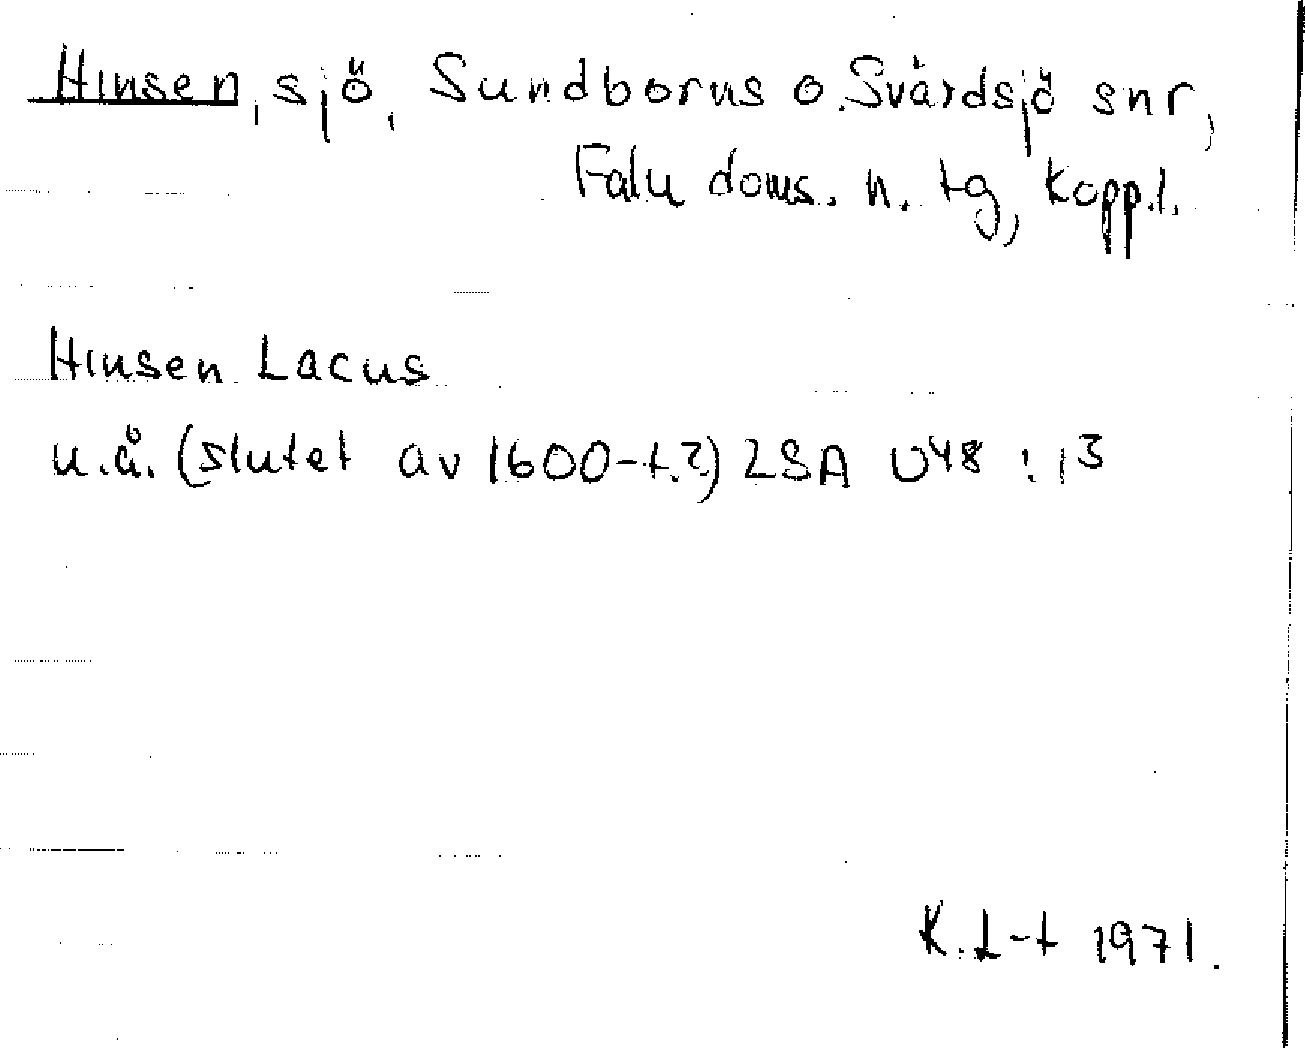 Hinsen, sjö, Sundborns o. Svärdsjö snr,
Falu doms. n. tg, Kopp.l.
Hinsen Lacus
u.å. (slutet av 1600-t.?) LSA U48 : 13
K.L-t 1971.